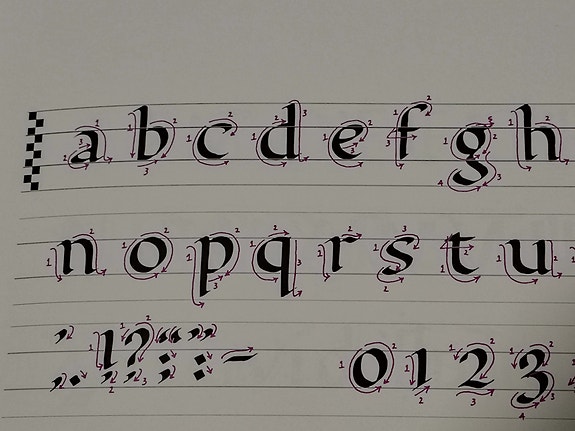 a b c d e f g h
n o p q r s t u
0 1 2 3